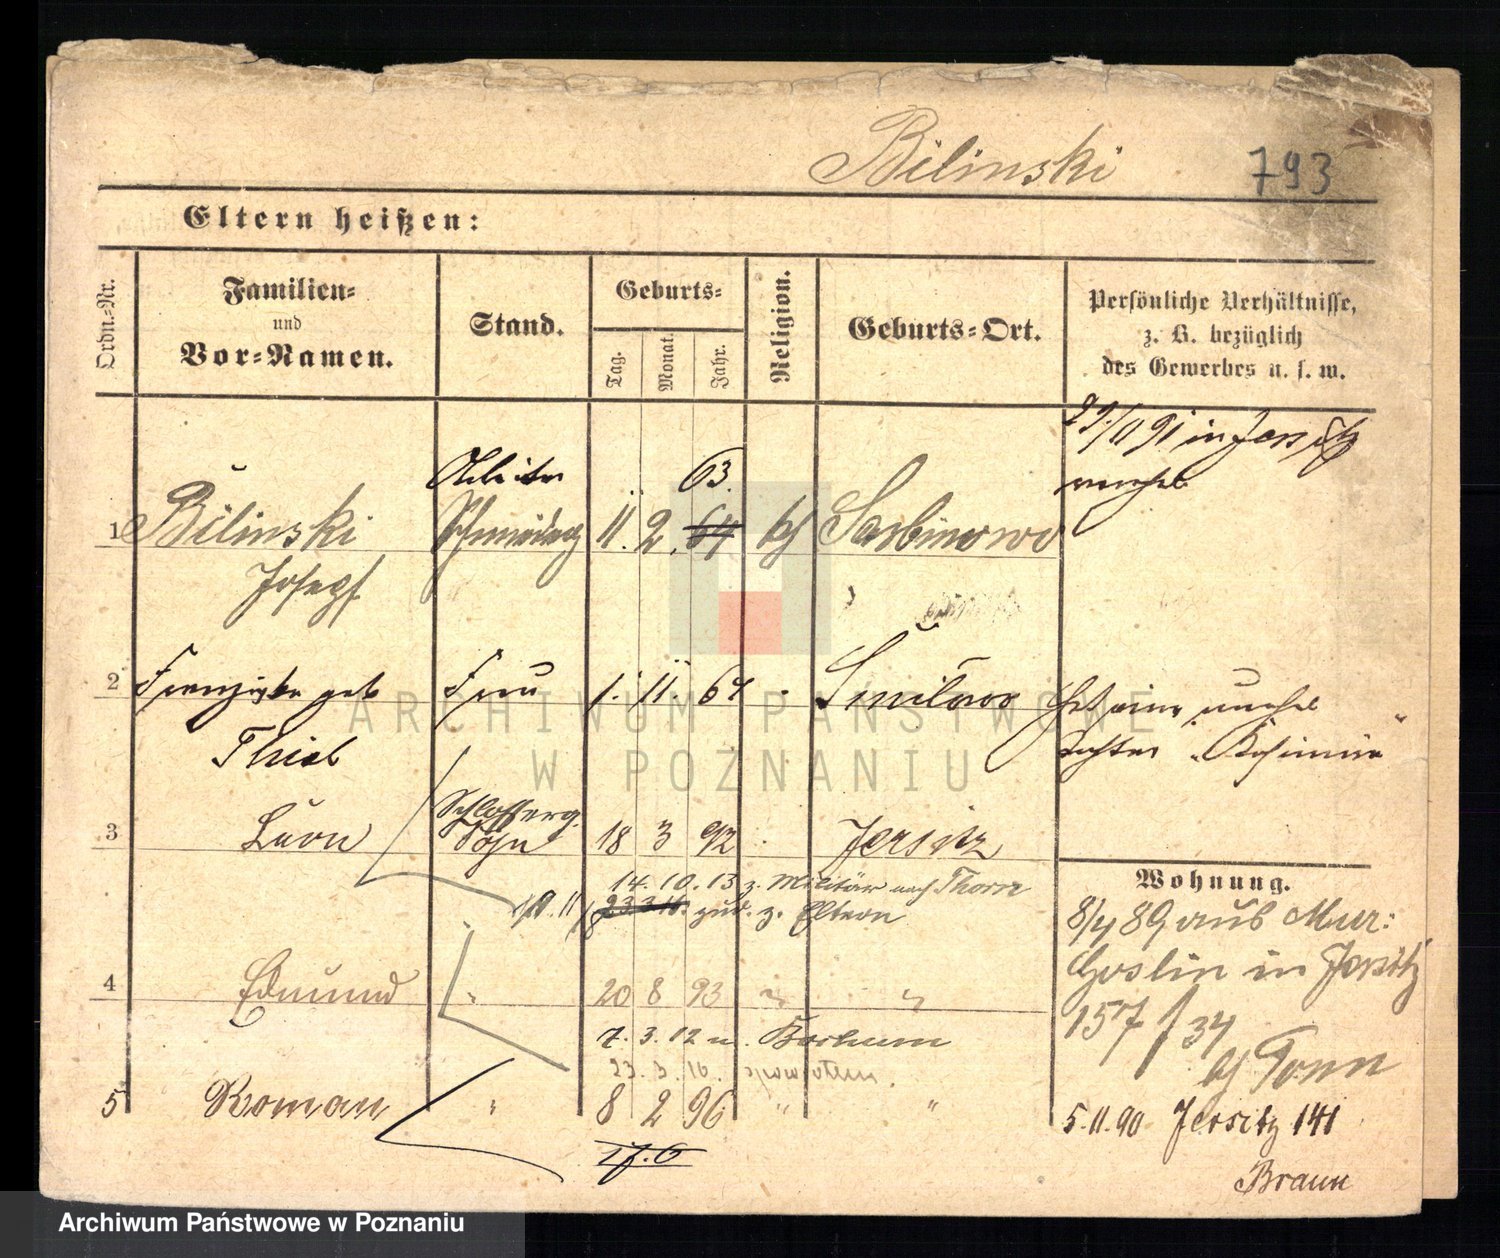 Bilinski 793
Eltern heißen:
Ordn.-Nr.
Familien-
und
Vor-Namen.
Stand.
Geburts-
Tag.
Monat.
Jahr.
Religion.
Geburts-Ort.
Persönliche Verhältnisse,
z. B. bezüglich
des Gewerbes u. s. w.
29/11 91 in Jersitz
63.
1 Bilinski 11. 2. 64 kf Sarbinowo
Josef
2 Franziska geb Frau 1. 11. 64 Smilowo
Thiel
Tochter
Schlosserg.
3 Leon Sohn 18 3 92 Jersitz
14. 10. 13 z. Militär nach Thorn
zur. z. Eltern
4 Edmund " 20 8 93 " "
7. 3. 12 n. Bochum
23. 3. 16.
5 Roman " 8 2 96 " "
Wohnung.
8/4 89 aus Mur:
Goslin in Jersitz
157/34
bf Tonn
5.11.90 Jersitz 141
Braun
ARCHIWUM PAŃSTWOWE
W POZNANIU
Archiwum Państwowe w Poznaniu